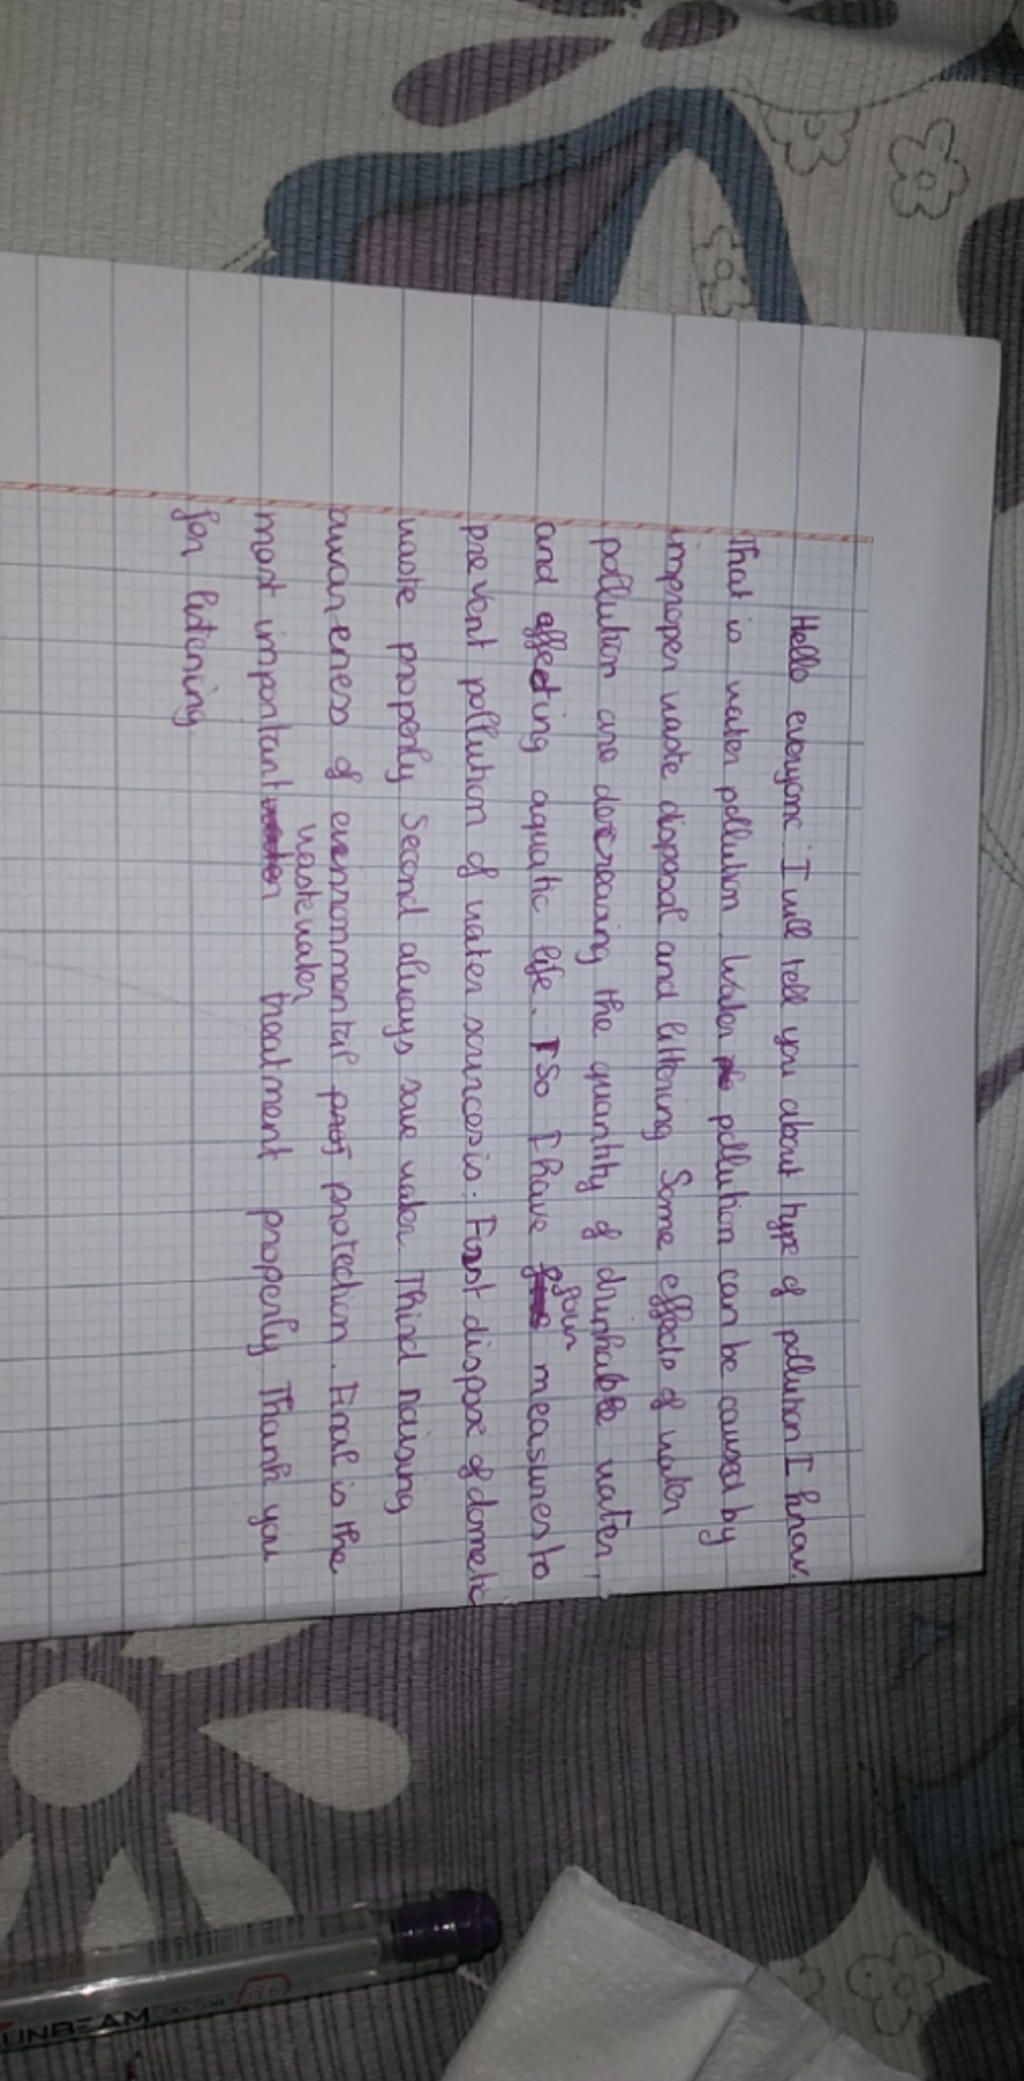 Hello everyone. I will tell you about type of pollution I know.
That is water pollution. Water pollution can be caused by
improper waste disposal and littering Some effects of water
pollution are decreasing the quantity of drinkable water,
and affecting aquatic life. So I have four measures to
prevent pollution of water sources is. First dispose of dometic
waste properly Second always save water. Third raising
awareness of environmental protection. Final is the
most important wastewater treatment properly Thank you
for listening
UNBEAM